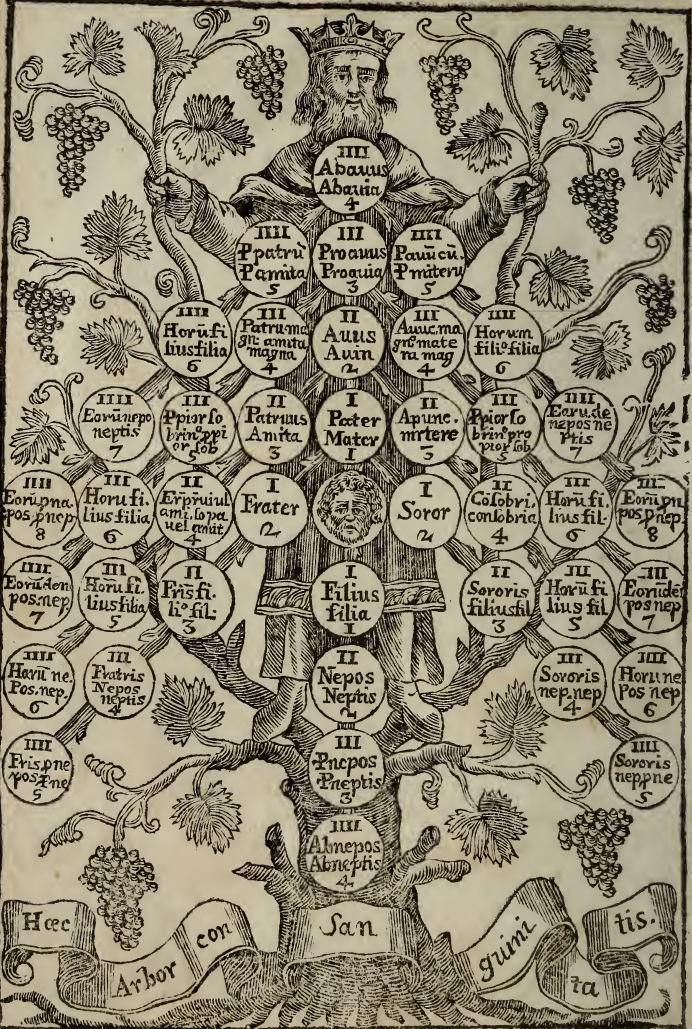 IIII
Abauus
Abauia
4
IIII
Ppatrũ
Pamita
5
III
Proauus
Proauia
3
IIII
Pauũcũ.
Pmiteru
5
IIII
Horũ fi
lius filia
6
III
Patru. ma
gn: amita
magna
4
II
Auus
Auin
2
III
Auuc. ma
gn⁹ mate
ra mag
4
IIII
Horum
fili⁹ filia
6
IIII
Eorũ nepo
neptis
7
III
Ppior so
brin⁹ ppi
or sob
5
II
Patruus
Amita
3
I
Pater
Mater
1
II
Apunc.
mrtere
3
III
Ppior so
brin⁹ pro
pior sob
5
IIII
Earu de
nepos ne
ptis
7
IIII
Eorũ pna
pos pnep
8
III
Horu fi.
lius filia
6
II
ami.
uel amit
4
I
Frater
2
I
Soror
2
II
Cõsobri.
consobria
4
III
Horũ fi.
lius fil.
6
Eorũ pn
pos pnep
8
IIII
Eorũ den
pos. nep
7
III
Horũ fi.
lius filia
5
II
Fris fi.
li⁹ fil.
3
I
Filius
filia
1
II
Sororis
filius fil
3
III
Horũ fi
lius fil
5
III
Eorũ dẽ
pos nep
7
IIII
Harũ ne.
Pos. nep.
6
III
Fratris
Nepos
neptis
4
II
Nepos
Neptis
2
III
Sororis
nep. nep
4
IIII
Horu ne
Pos nep
6
IIII
Fris pne
pos pne
5
III
Pnepos
Pneptis
3
IIII
Sororis
nep pne
5
IIII
Abnepos
Abneptis
4
Hæc Arbor con San guini ta tis.